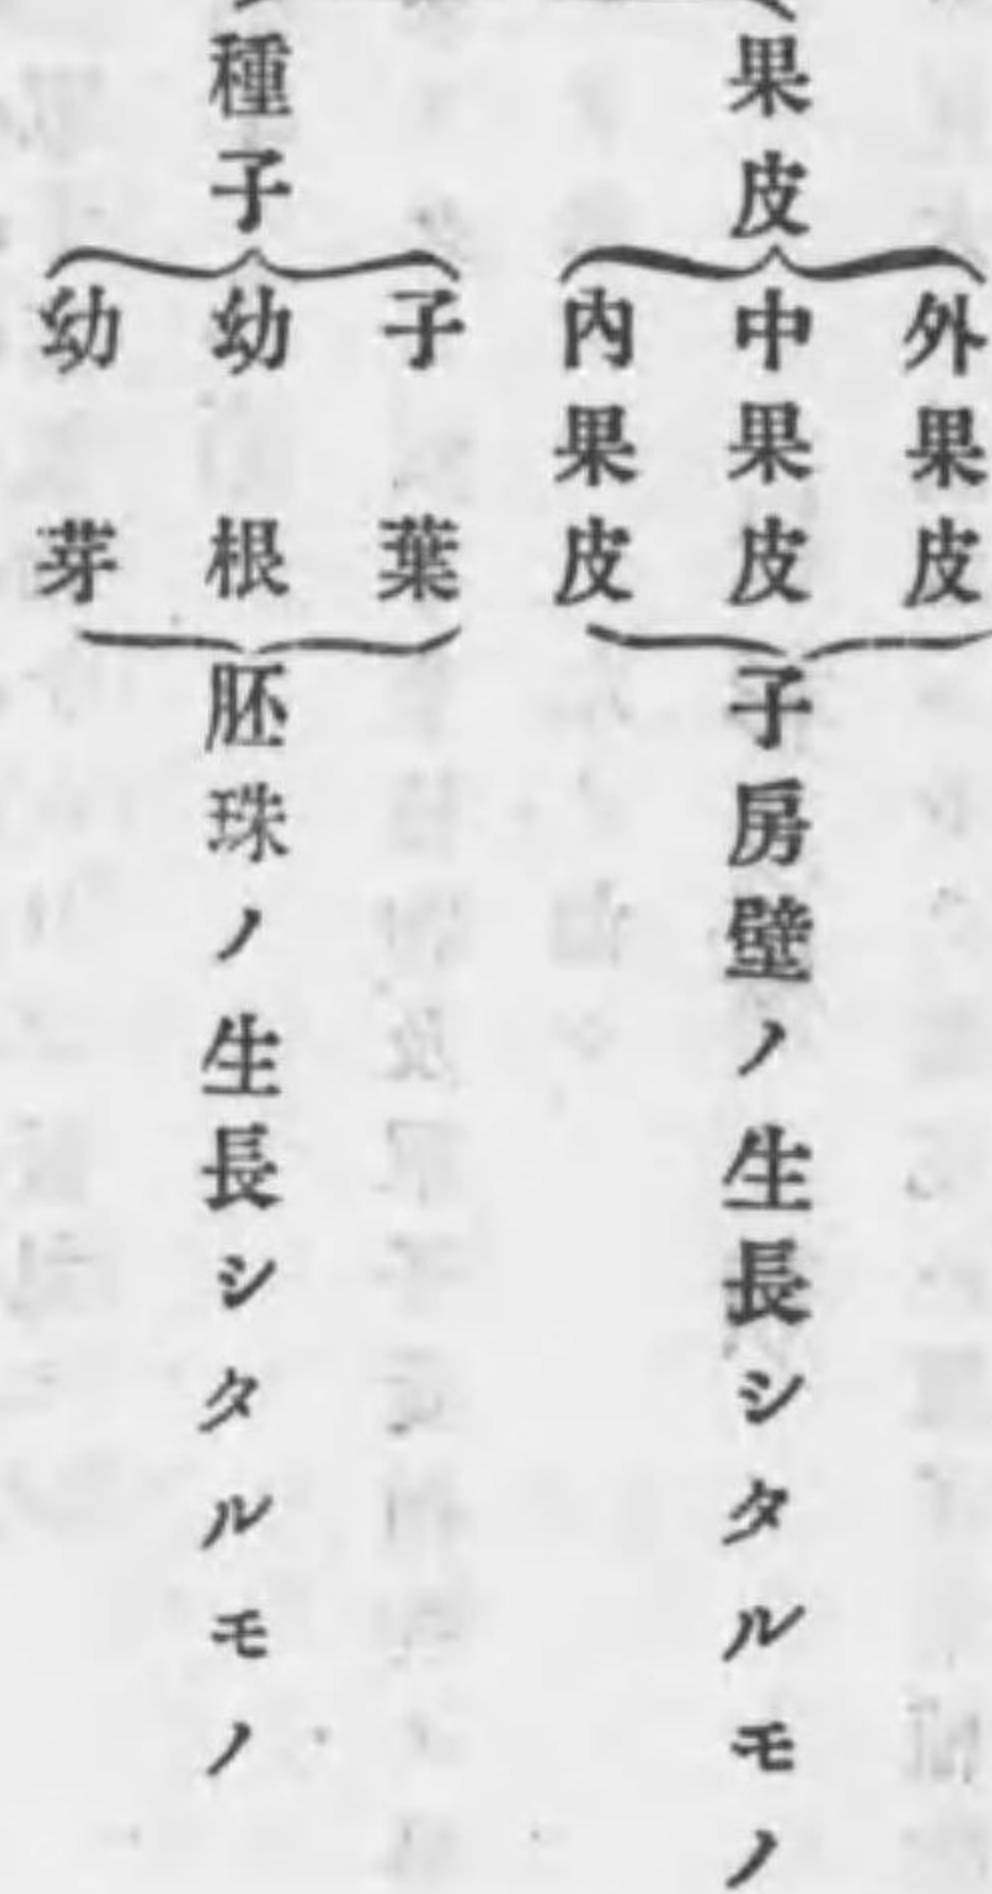 果皮
外果皮
中果皮
內果皮
子房壁ノ生長シタルモノ
種子
子葉
幼根
幼芽
胚珠ノ生長シタルモノ